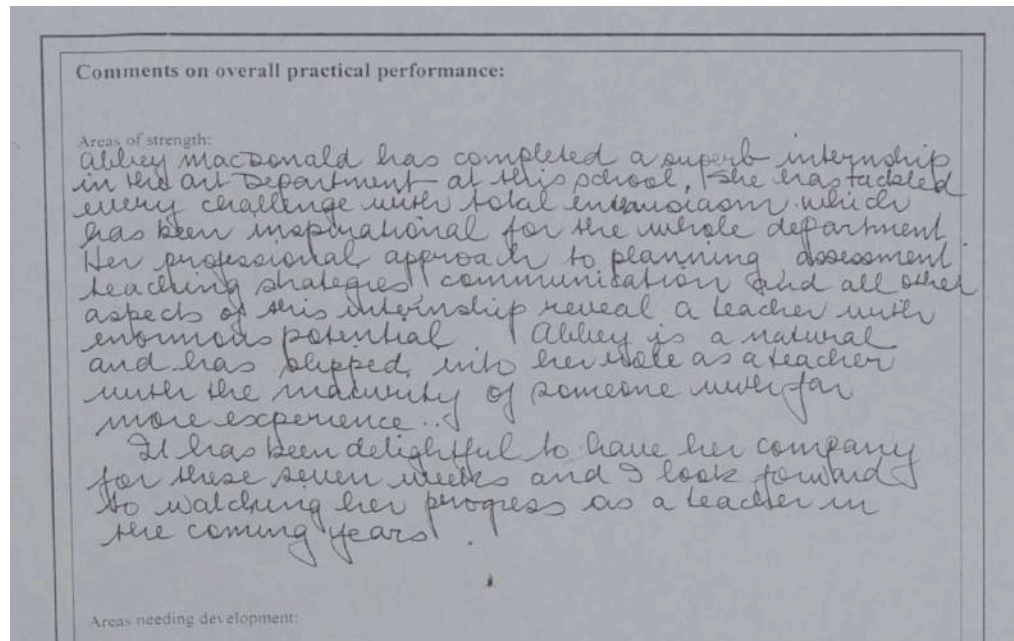 Comments on overall practical performance:
Areas of strength:
Abbey MacDonald has completed a superb internship
in the Art Department at this school. She has tackled
every challenge with total enthusiasm which
has been inspirational for the whole department.
Her professional approach to planning assessment
teaching strategies communication and all other
aspects of this internship reveal a teacher with
enormous potential. Abbey is a natural
and has slipped into her role as a teacher
with the maturity of someone with far
more experience..
It has been delightful to have her company
for these seven weeks and I look forward
to watching her progress as a teacher in
the coming years.
Areas needing development: